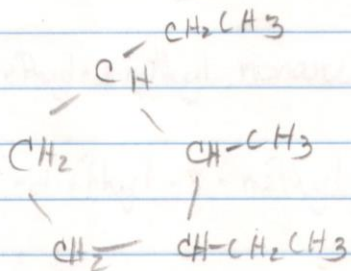 CH2CH3
CH
CH2 CH-CH3
CH2 CH-CH2CH3